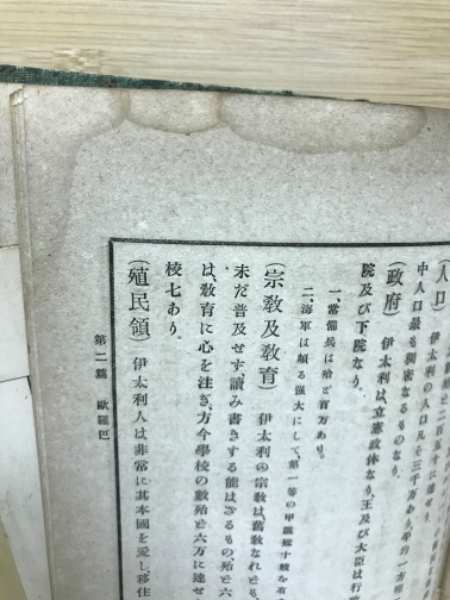 (人口) 伊太利の人口凡そ三千万あり、
中人口最も稠密なるものなり。
(政府) 伊太利は立憲政体なり、王及び大臣は行政
院及び下院なり。
一、常備兵は殆ど百万あり。
二、海軍は頗る強大にして、第一等の甲鐵艦十艘を有
(宗教及教育) 伊太利の宗教は、舊教なれども、
未だ普及せず、讀み書きする能はざるもの、殆と六
は、教育に心を注ぎ、方今學校の數殆ど六万に達せ
校七あり。
(殖民領) 伊太利人は非常に其本國を愛し、移住
第二篇 歐羅巴